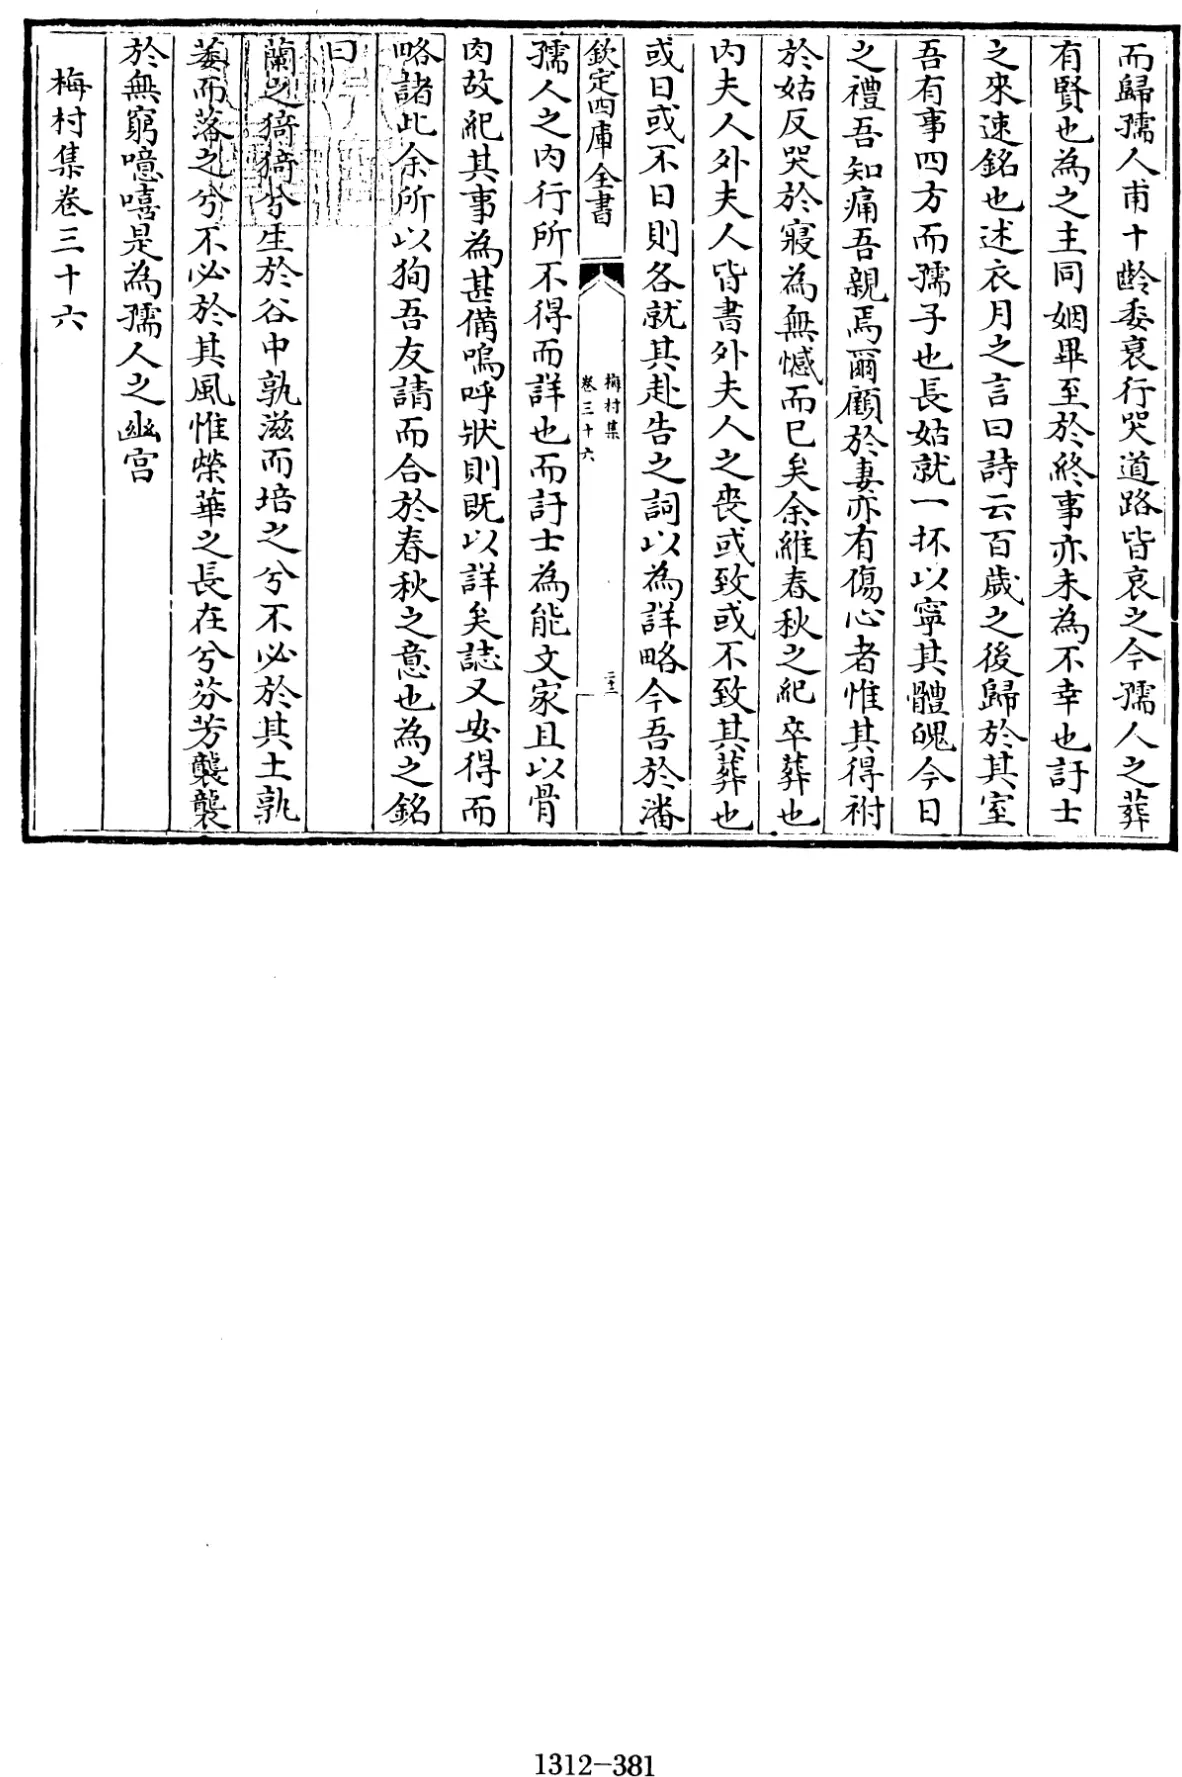 而歸孺人甫十齡委裒行哭道路皆哀之今孺人之葬
有賢也為之主同姻畢至於終事亦未為不幸也訏士
之來速銘也述衣月之言曰詩云百歲之後歸於其室
吾有事四方而孺子也長姑就一抔以寧其體魄今日
之禮吾知痛吾親焉爾顧於妻亦有傷心者惟其得祔
於姑反哭於寢為無憾而已矣余維春秋之紀卒葬也
内夫人外夫人皆書外夫人之喪或致或不致其葬也
或日或不日則各就其赴告之詞以為詳略今吾於潘
欽定四庫全書
梅村集
卷三十六
二十二
孺人之内行所不得而詳也而訏士為能文家且以骨
肉故紀其事為甚備嗚呼狀則既以詳矣誌又安得而
略諸此余所以狥吾友請而合於春秋之意也為之銘
曰
蘭之猗猗兮生於谷中孰滋而培之兮不必於其土孰
萎而落之兮不必於其風惟榮華之長在兮芬芳襲襲
於無窮噫嘻是為孺人之幽宫
梅村集卷三十六
1312-381